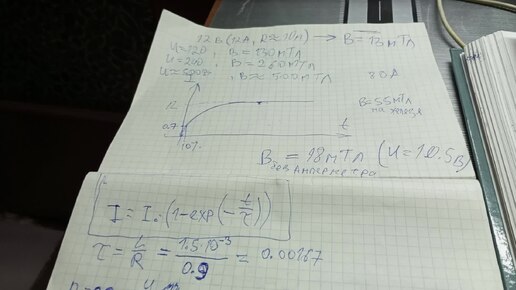 12В (12А, R≈1Ом) → B=13мТл
U=120, B=130мТл
U=240, B=260мТл
U=500В, B≈500мТл
80А
B=55мТл
на железе
I
12
0.7
10%
t
Bзев амперметра = 18мТл (U=10.5В)
I = I₀·(1-exp(-t/τ))
τ = L/R = 1.5·10⁻³/0.9 = 0.00167